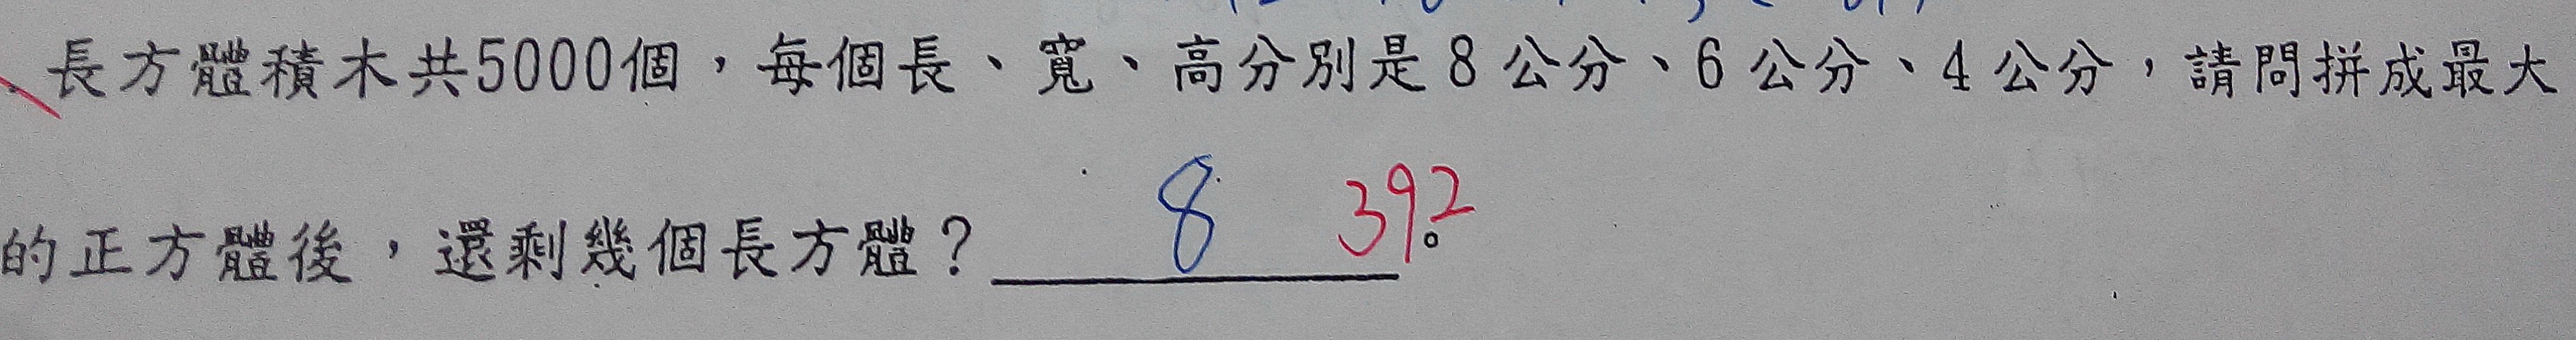 長方體積木共5000個，每個長、寬、高分別是8公分、6公分、4公分，請問拼成最大
的正方體後，還剩幾個長方體？ 8 392。